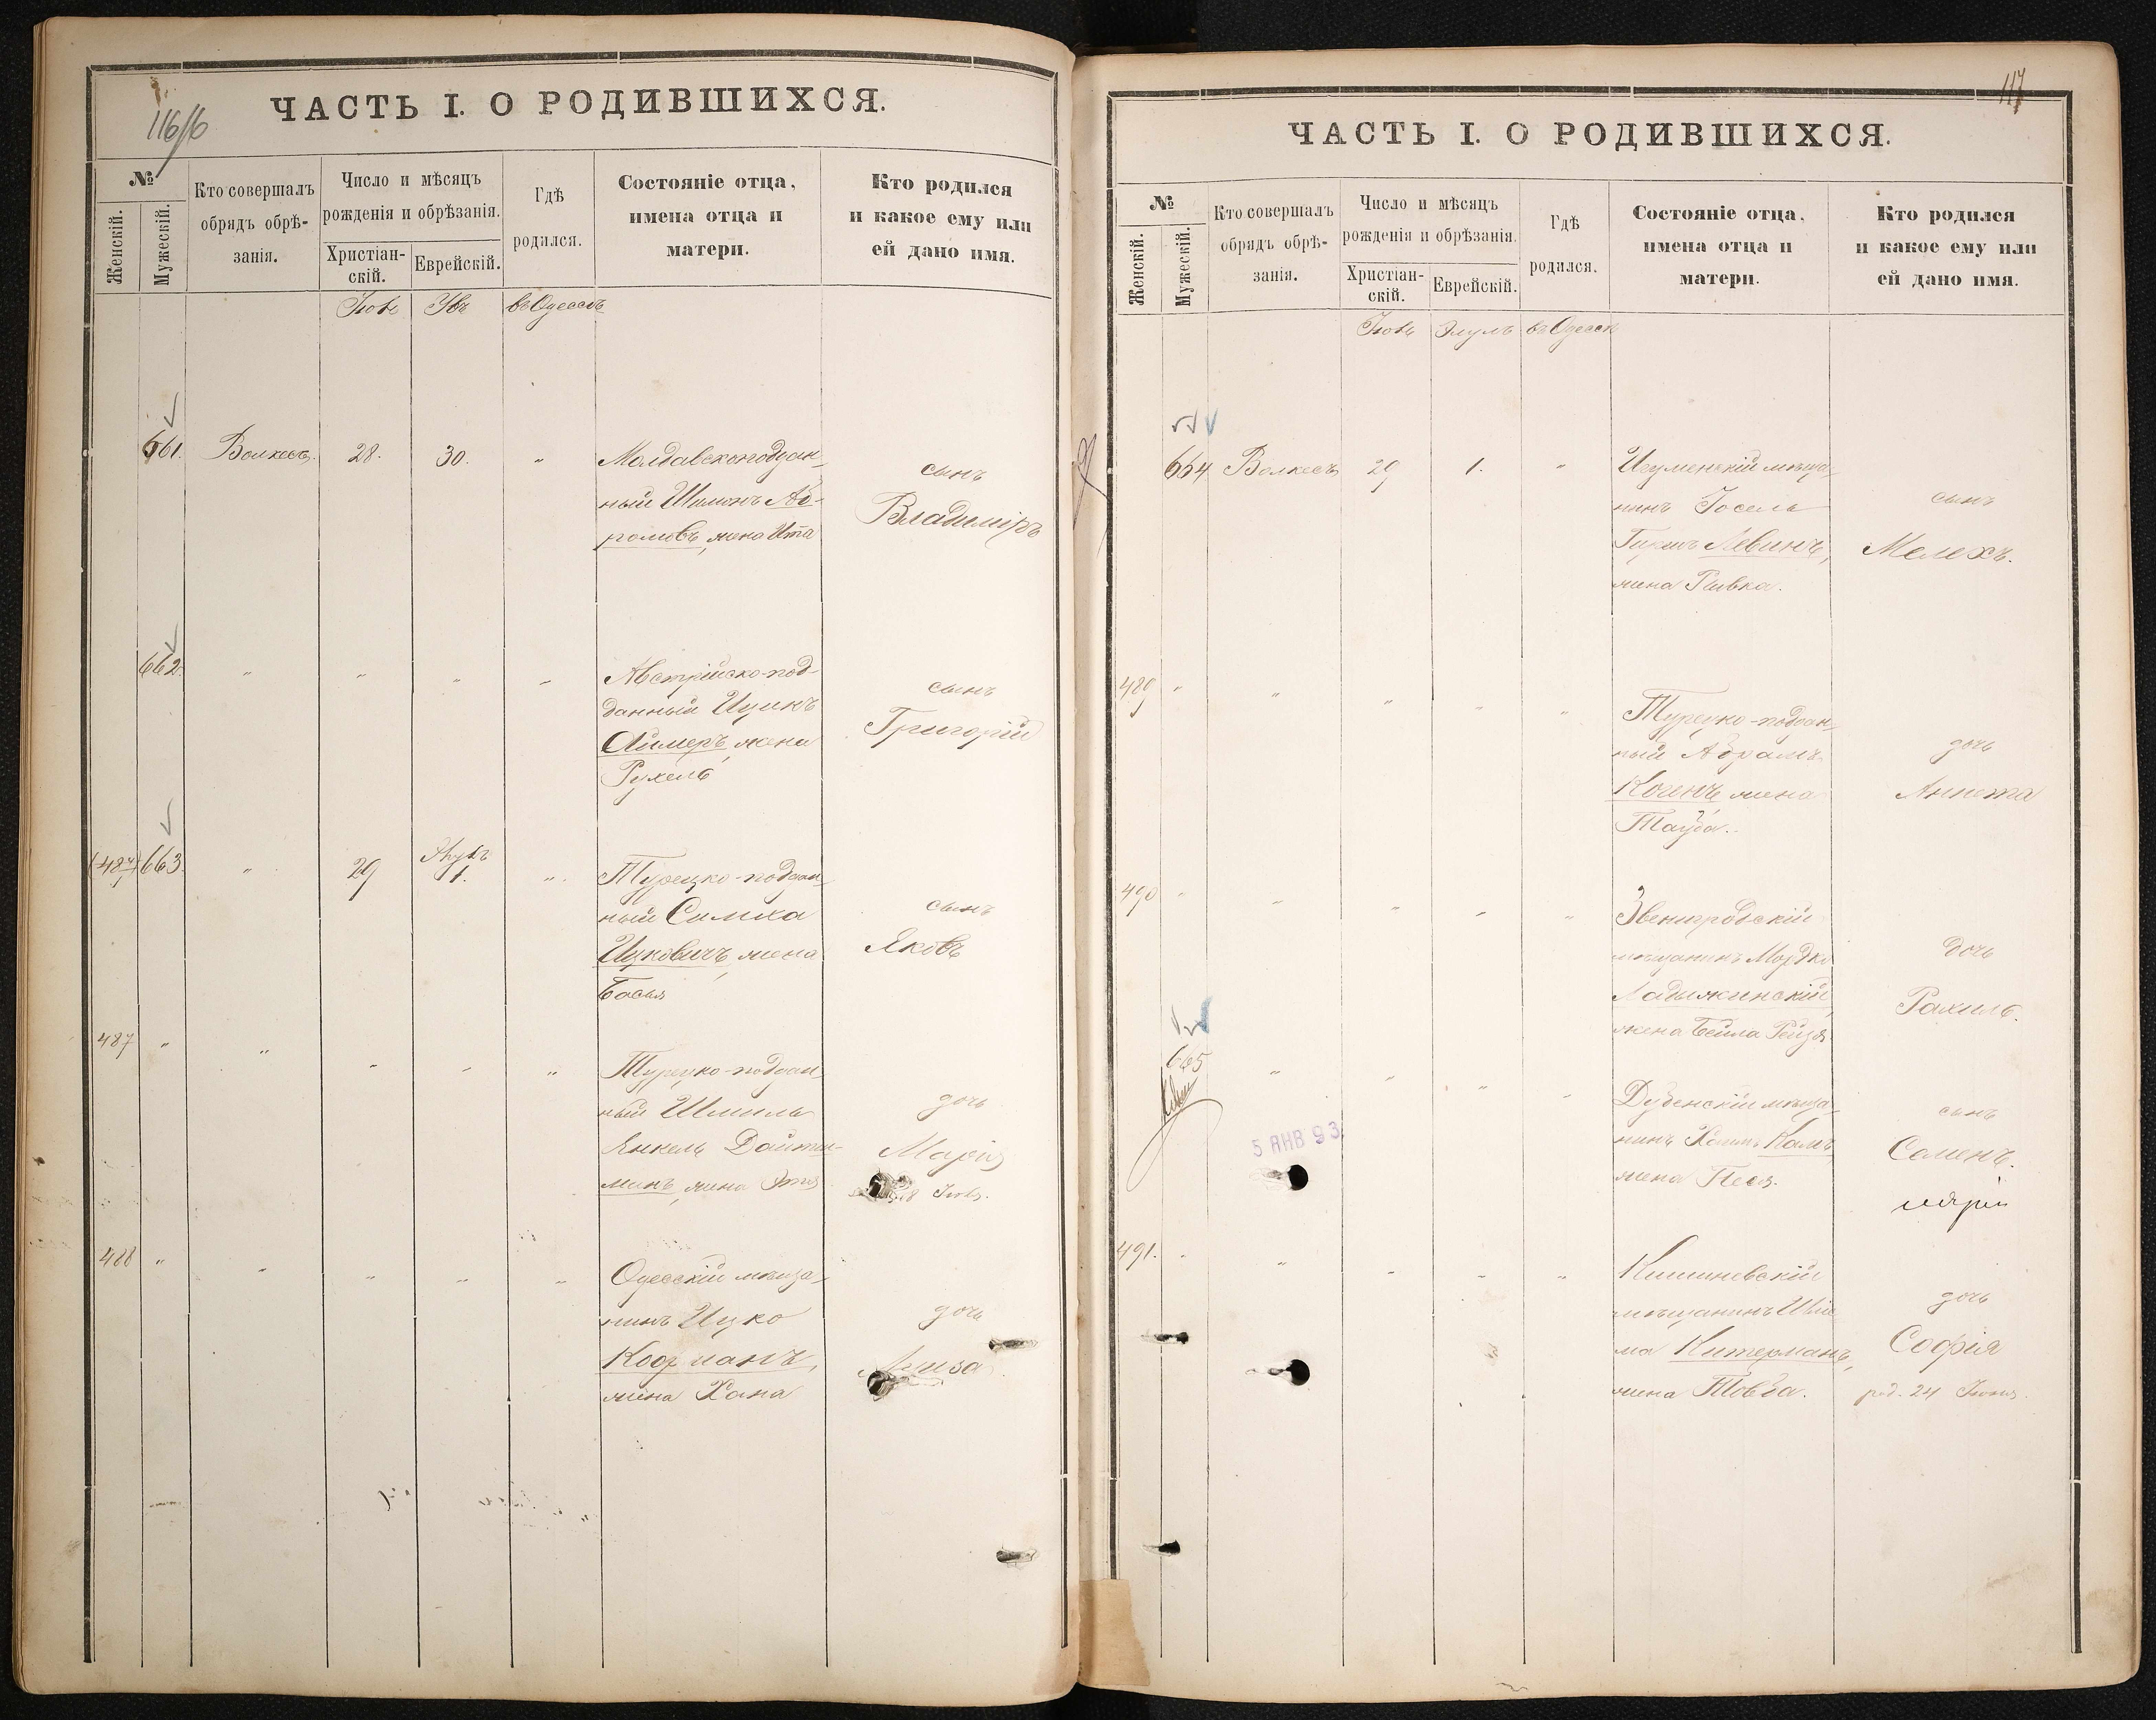 116/б
ЧАСТЬ I. О РОДИВШИХСЯ.
№
Женскій.
Мужескій.
Кто совершалъ
обрядъ обрѣ-
занія.
Число и мѣсяцъ
рожденія и обрѣзанія.
Христіан-
скій.
Еврейскій.
Гдѣ
родился.
Состояніе отца,
имена отца и
матери.
Кто родился
и какое ему или
ей дано имя.
въ Одессѣ
661.
28.
30.
"
Молдавскоподдан-
ный
жена Ита
сынъ
Владиміръ
662.
" " " "
Австрійско-под-
данный Ицикъ
жена
Рухель
сынъ
Григорій
(487) 663.
"
29
1.
"
Турецко-поддан-
ный Симха
Ицковичъ, жена
Бася
сынъ
Яковъ
487 " " " " "
Турецко-поддан-
ный Шмиль
Янкель
манъ, жена
дочь
Марія
488 " " " " "
Одесскій мѣща-
нинъ Ицко
жена Хана
дочь
117
ЧАСТЬ I. О РОДИВШИХСЯ.
№
Женскій.
Мужескій.
Кто совершалъ
обрядъ обрѣ-
занія.
Число и мѣсяцъ
рожденія и обрѣзанія.
Христіан-
скій.
Еврейскій.
Гдѣ
родился.
Состояніе отца,
имена отца и
матери.
Кто родился
и какое ему или
ей дано имя.
Элулъ
въ Одессѣ
664
29
1.
"
Игуменскій мѣща-
нинъ Іосель
Гиршъ Левинъ,
жена Ривка.
сынъ
Мелехъ.
489 " " " " "
Турецко-поддан-
ный Абрамъ
Когенъ жена
Тауба.
дочь
Аннета
490 " " " " "
мѣщанинъ Мордко
Ладыжинскій,
жена Бейла Рейзя
дочь
Рахиль.
665
" " " "
Дубенскій мѣща-
нинъ Хаимъ
жена Песя.
сынъ
Семенъ.
5 ЯНВ 93
491. " " " " "
Кишиневскій
мѣщанинъ
ма Китерманъ,
жена Товба.
дочь
Софія
род. 24